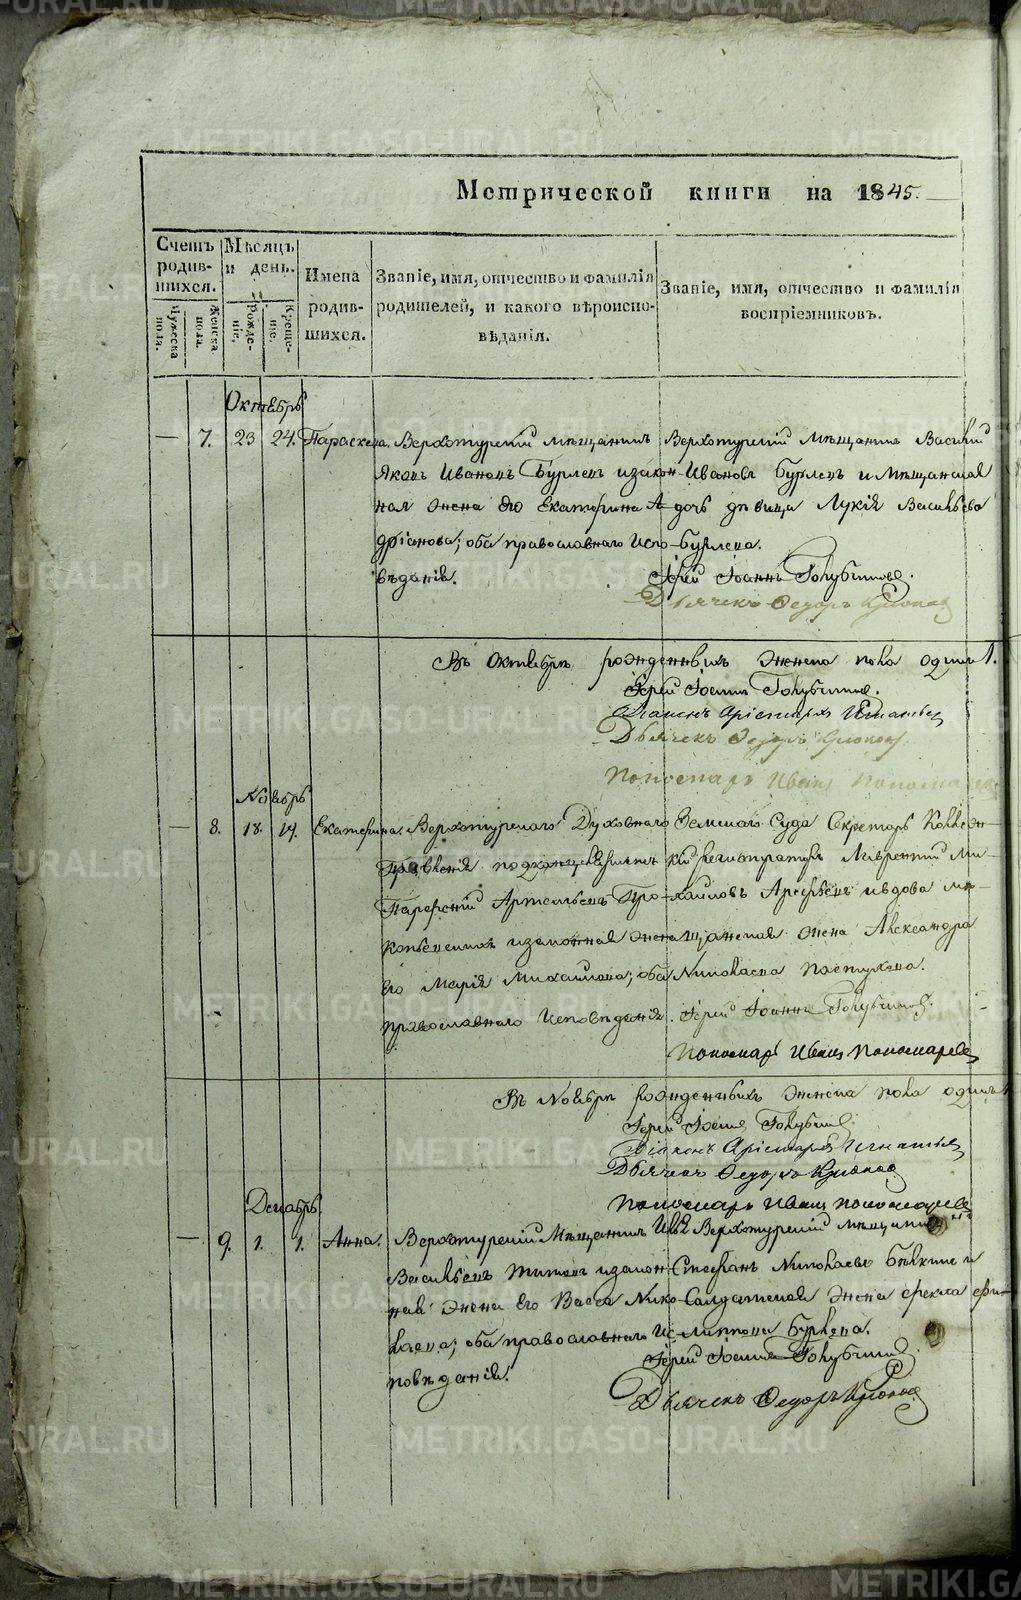 Метрической книги на 1845.
Счетъ родив-шихся.
Мѣсяцъ и день.
Имена родив-шихся.
Званіе, имя, отчество и фамилія родителей, и какого вѣроиспо-вѣданія.
Званіе, имя, отчество и фамилія воспріемниковъ.
Мужеска пола.
Женска пола.
Рожде-ніе.
Креще-ніе.
Октябрь
— 7. 23 24. Параскева.
Верхотурскій мѣщанинъ
Яковъ Ивановъ Бурлевъ и закон-
ная жена его Екатерина А-
дріанова; оба православнаго испо-
вѣданія.
Верхотурскій мѣщанинъ Василий
Ивановъ Бурлевъ и мѣщанская
дочь дѣвица Лукія Васильева
Бурлева.
Іерей Іоаннъ Голубчиковъ.
Дьячекъ Федоръ
Въ Октябрѣ рожденныхъ женска пола одинъ 1.
Іерей Іоаннъ Голубчиковъ.
Діаконъ Арістархъ Игнатьев
Дьячекъ Федоръ
Пономарь Иванъ Пономарев
Ноябрь
— 8. 18. 19. Екатерина.
Верхотурскаго Духовнаго
Правленія
Парфеній Артемьевъ Про-
копьевъ и законная жена
его Марія Михайлова; оба
православнаго исповѣданія.
Земскаго Суда Секретарь Коллеж-
скій регистраторъ Лаврентій Ми-
хайловъ Арефьевъ и вдова мѣ-
щанская жена Александра
Николаева Пастухова.
Іерей Іоаннъ Голубчиковъ.
Пономарь Иванъ Пономарев
Въ Ноябрѣ рожденныхъ женска пола одинъ 1
Іерей Іоаннъ Голубчиков
Діаконъ Арістархъ Игнатьев
Дьячекъ Федоръ
Пономарь Иванъ Пономарев
Декабрь.
— 9. 1. 1. Анна.
Верхотурскій Мѣщанинъ Ив.
Васильевъ Титовъ и закон-
ная жена его Васса Нико-
лаева; оба православнаго ис-
повѣданія.
Верхотурскій мѣщанинъ
Стефанъ Николаевъ Бѣлкинъ и
Солдатская жена Фекла Фи-
липпова Бурлева.
Іерей Іоаннъ Голубчиков
Дьячекъ Федоръ
METRIKI.GASO-URAL.RU